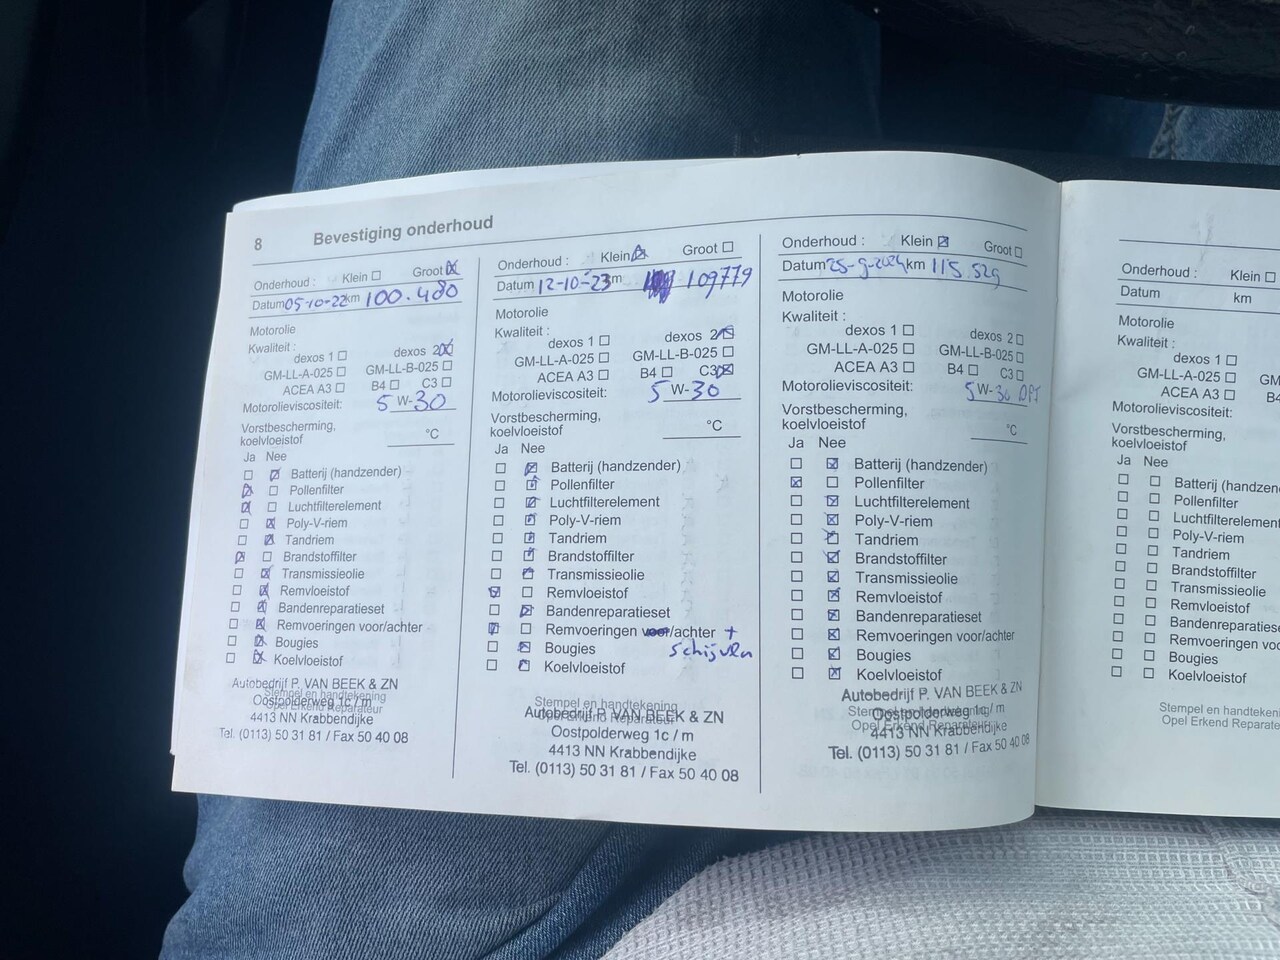 8 Bevestiging onderhoud
Onderhoud : Klein ☐ Groot ☒
Datum 05-10-22 km 100.480
Motorolie
Kwaliteit :
dexos 1 ☐ dexos 2 ☒
GM-LL-A-025 ☐ GM-LL-B-025 ☐
ACEA A3 ☐ B4 ☐ C3 ☐
Motorolieviscositeit: 5 W-30
Vorstbescherming,
koelvloeistof °C
Ja Nee
☐ ☒ Batterij (handzender)
☒ ☐ Pollenfilter
☒ ☐ Luchtfilterelement
☐ ☒ Poly-V-riem
☐ ☒ Tandriem
☒ ☐ Brandstoffilter
☐ ☒ Transmissieolie
☐ ☒ Remvloeistof
☐ ☒ Bandenreparatieset
☐ ☒ Remvoeringen voor/achter
☐ ☒ Bougies
☐ ☒ Koelvloeistof
Autobedrijf P. VAN BEEK & ZN
Stempel en handtekening
Oostpolderweg 1c / m
Opel Erkend Reparateur
4413 NN Krabbendijke
Tel. (0113) 50 31 81 / Fax 50 40 08
Onderhoud : Klein ☒ Groot ☐
Datum 12-10-23 km 109779
Motorolie
Kwaliteit :
dexos 1 ☐ dexos 2 ☒
GM-LL-A-025 ☐ GM-LL-B-025 ☐
ACEA A3 ☐ B4 ☐ C3 ☒
Motorolieviscositeit: 5 W-30
Vorstbescherming,
koelvloeistof °C
Ja Nee
☐ ☒ Batterij (handzender)
☐ ☒ Pollenfilter
☐ ☒ Luchtfilterelement
☐ ☒ Poly-V-riem
☐ ☒ Tandriem
☐ ☒ Brandstoffilter
☐ ☒ Transmissieolie
☒ ☐ Remvloeistof
☐ ☒ Bandenreparatieset
☒ ☐ Remvoeringen voor/achter +
schijven
☐ ☒ Bougies
☐ ☒ Koelvloeistof
Stempel en handtekening
Autobedrijf P. VAN BEEK & ZN
Oostpolderweg 1c / m
4413 NN Krabbendijke
Tel. (0113) 50 31 81 / Fax 50 40 08
Onderhoud : Klein ☒ Groot ☐
Datum 25-9-2024 km 115.529
Motorolie
Kwaliteit :
dexos 1 ☐ dexos 2 ☐
GM-LL-A-025 ☐ GM-LL-B-025 ☐
ACEA A3 ☐ B4 ☐ C3 ☐
Motorolieviscositeit: 5 W-30 DPF
Vorstbescherming,
koelvloeistof °C
Ja Nee
☐ ☒ Batterij (handzender)
☒ ☐ Pollenfilter
☐ ☒ Luchtfilterelement
☐ ☒ Poly-V-riem
☐ ☒ Tandriem
☐ ☒ Brandstoffilter
☐ ☒ Transmissieolie
☐ ☒ Remvloeistof
☐ ☒ Bandenreparatieset
☐ ☒ Remvoeringen voor/achter
☐ ☒ Bougies
☐ ☒ Koelvloeistof
Autobedrijf P. VAN BEEK & ZN
Stempel en handtekening
Oostpolderweg 1c / m
Opel Erkend Reparateur
4413 NN Krabbendijke
Tel. (0113) 50 31 81 / Fax 50 40 08
Onderhoud : Klein ☐
Datum km
Motorolie
Kwaliteit :
dexos 1 ☐
GM-LL-A-025 ☐ GM
ACEA A3 ☐ B4
Motorolieviscositeit:
Vorstbescherming,
koelvloeistof
Ja Nee
☐ ☐ Batterij (handzende
☐ ☐ Pollenfilter
☐ ☐ Luchtfilterelement
☐ ☐ Poly-V-riem
☐ ☐ Tandriem
☐ ☐ Brandstoffilter
☐ ☐ Transmissieolie
☐ ☐ Remvloeistof
☐ ☐ Bandenreparatiese
☐ ☐ Remvoeringen vo
☐ ☐ Bougies
☐ ☐ Koelvloeistof
Stempel en handteken
Opel Erkend Reparate